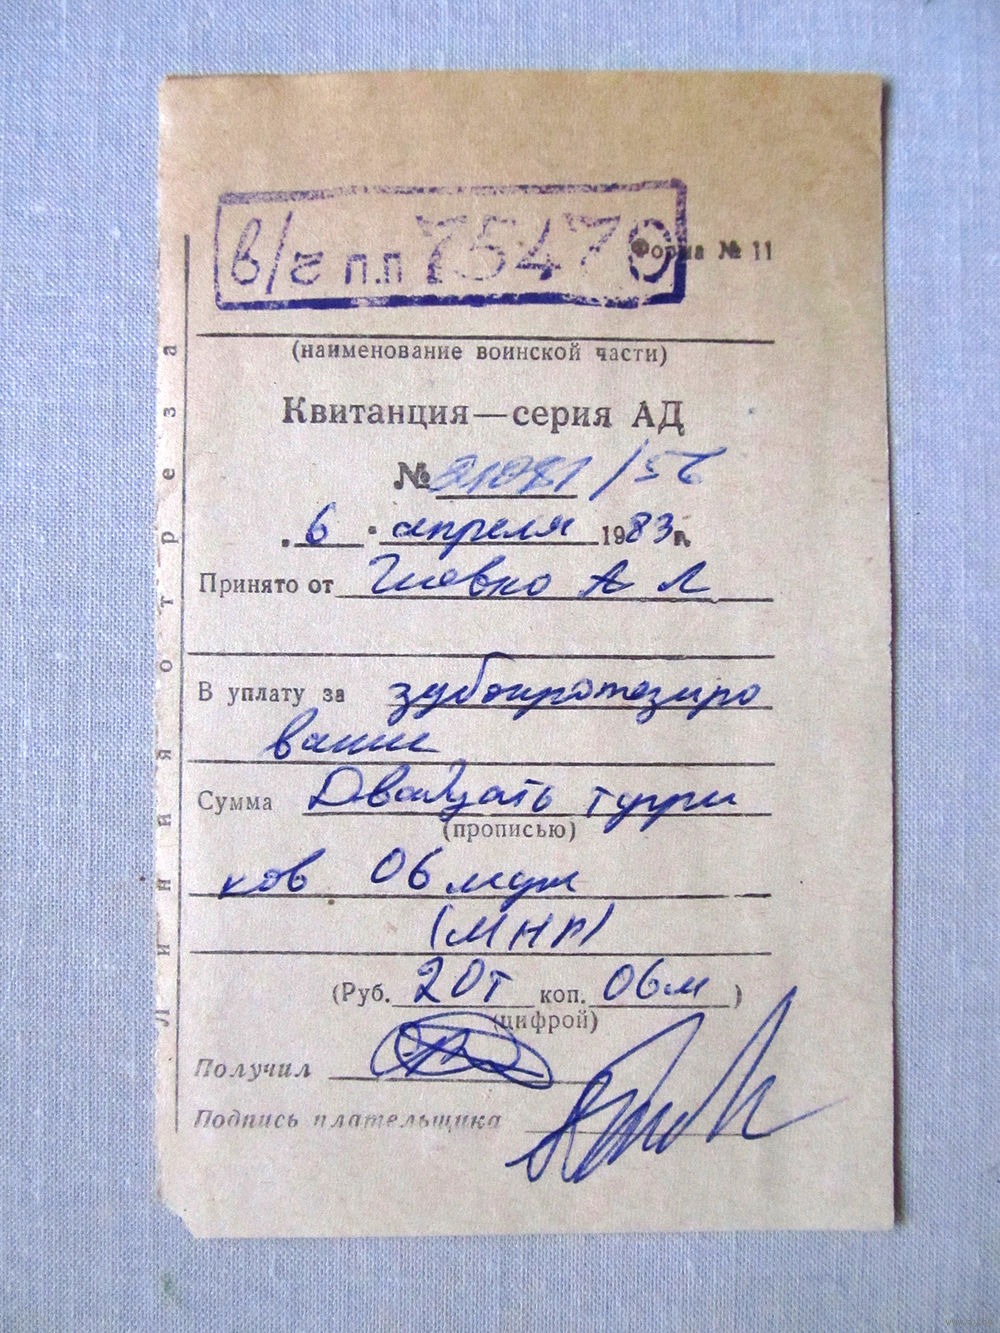 в/ч п.п 75470
Форма № 11
(наименование воинской части)
Квитанция—серия АД
№ /56
„6“ апреля 1983г.
Принято от А Л
В уплату за зубопротезиро
вание
Сумма Двадцать тугри
(прописью)
ков 06 мунг
(МНР)
(Руб. 20т коп. 06м)
(цифрой)
Получил
Подпись плательщика
Линия отреза